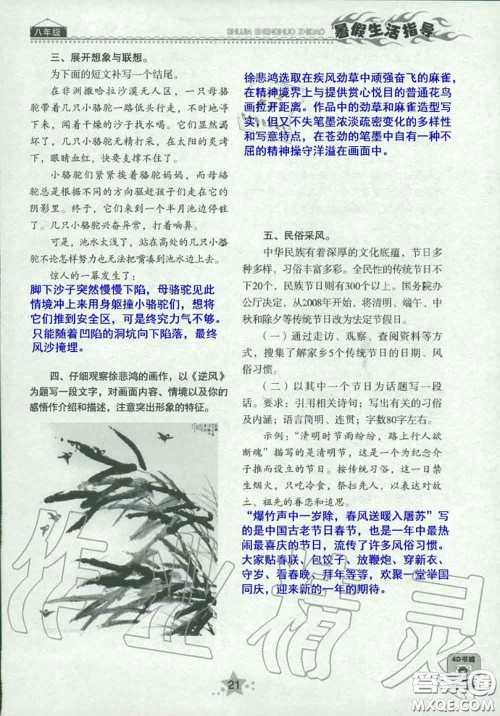 八年级
SHUJIA SHENGHUO ZHIDAO
暑假生活指导
三、展开想象与联想。
为下面的短文补写一个结尾。
在非洲撒哈拉沙漠无人区，几只小骆
驼带着几只小骆驼一路低头行走，不时地停下
来，闻着干燥的沙子找水喝。它们显然渴坏
了，几只小骆驼无精打采，在太阳的炙烤下
，眼睛血红，快要支撑不住了。
它们紧紧挨着骆驼妈妈，而母骆
驼总是根据不同的方向驱赶孩子们走在它的
阴影里。终于，它们来到一个半月池边停住
了。几只小骆驼兴奋异常，打着响鼻。
可是，池水太浅了，站在高处的几只小骆
驼不论怎样努力也无法把嘴凑到池水边上去。
惊人的一幕发生了：
脚下沙子突然慢慢下陷，母骆驼见此
情境冲上来用身躯撞小骆驼们，想将
它们推到安全区，可是终究力气不够。
只能随着凹陷的洞坑向下陷落，最终
风沙掩埋。
四、仔细观察徐悲鸿的画作，以《逆风》
为题写一段文字，对画面内容、情境以及你的
感悟作介绍和描述，注意突出形象的特征。
徐悲鸿选取在疾风劲草中顽强奋飞的麻雀，
在精神境界上与提供赏心悦目的普通花鸟
画拉开距离。作品中的劲草和麻雀造型写
实，但又不失笔墨浓淡疏密变化的多样性
和写意特点，在苍劲的笔墨中自有一种不
屈的精神操守洋溢在画面中。
五、民俗采风。
中华民族有着深厚的文化底蕴，节日多
种多样，习俗丰富多彩。全民性的传统节日不
下20个，民族节日则有300个以上。国务院办
公厅决定，从2008年开始，将清明、端午、中
秋和除夕等传统节日改为法定节假日。
（一）通过走访、观察、查阅资料等方
式，搜集了解家乡5个传统节日的日期、风
俗习惯。
（二）以其中一个节日为话题写一段
话。要求：引用相关诗句；写出有关的习俗
及内涵；语言简明、连贯；字数80字左右。
示例：“清明时节雨纷纷，路上行人欲
断魂”描写的是清明节，这是一个为纪念介
子推而设立的节日。按传统习俗，到了这一
天，只吃冷食，祭扫先人，以表达对故
土、祖先的眷恋和追思。
“爆竹声中一岁除，春风送暖入屠苏”写
的是中国古老节日春节，也是一年中最热
闹最喜庆的节日，流传了许多风俗习惯。
大家贴春联、包饺子、放鞭炮、穿新衣、
守岁、看春晚、拜年等等，欢聚一堂举国
同庆，迎来新的一年的期待。
作业精灵
21
4D书城
答案圈
MXQE.COM